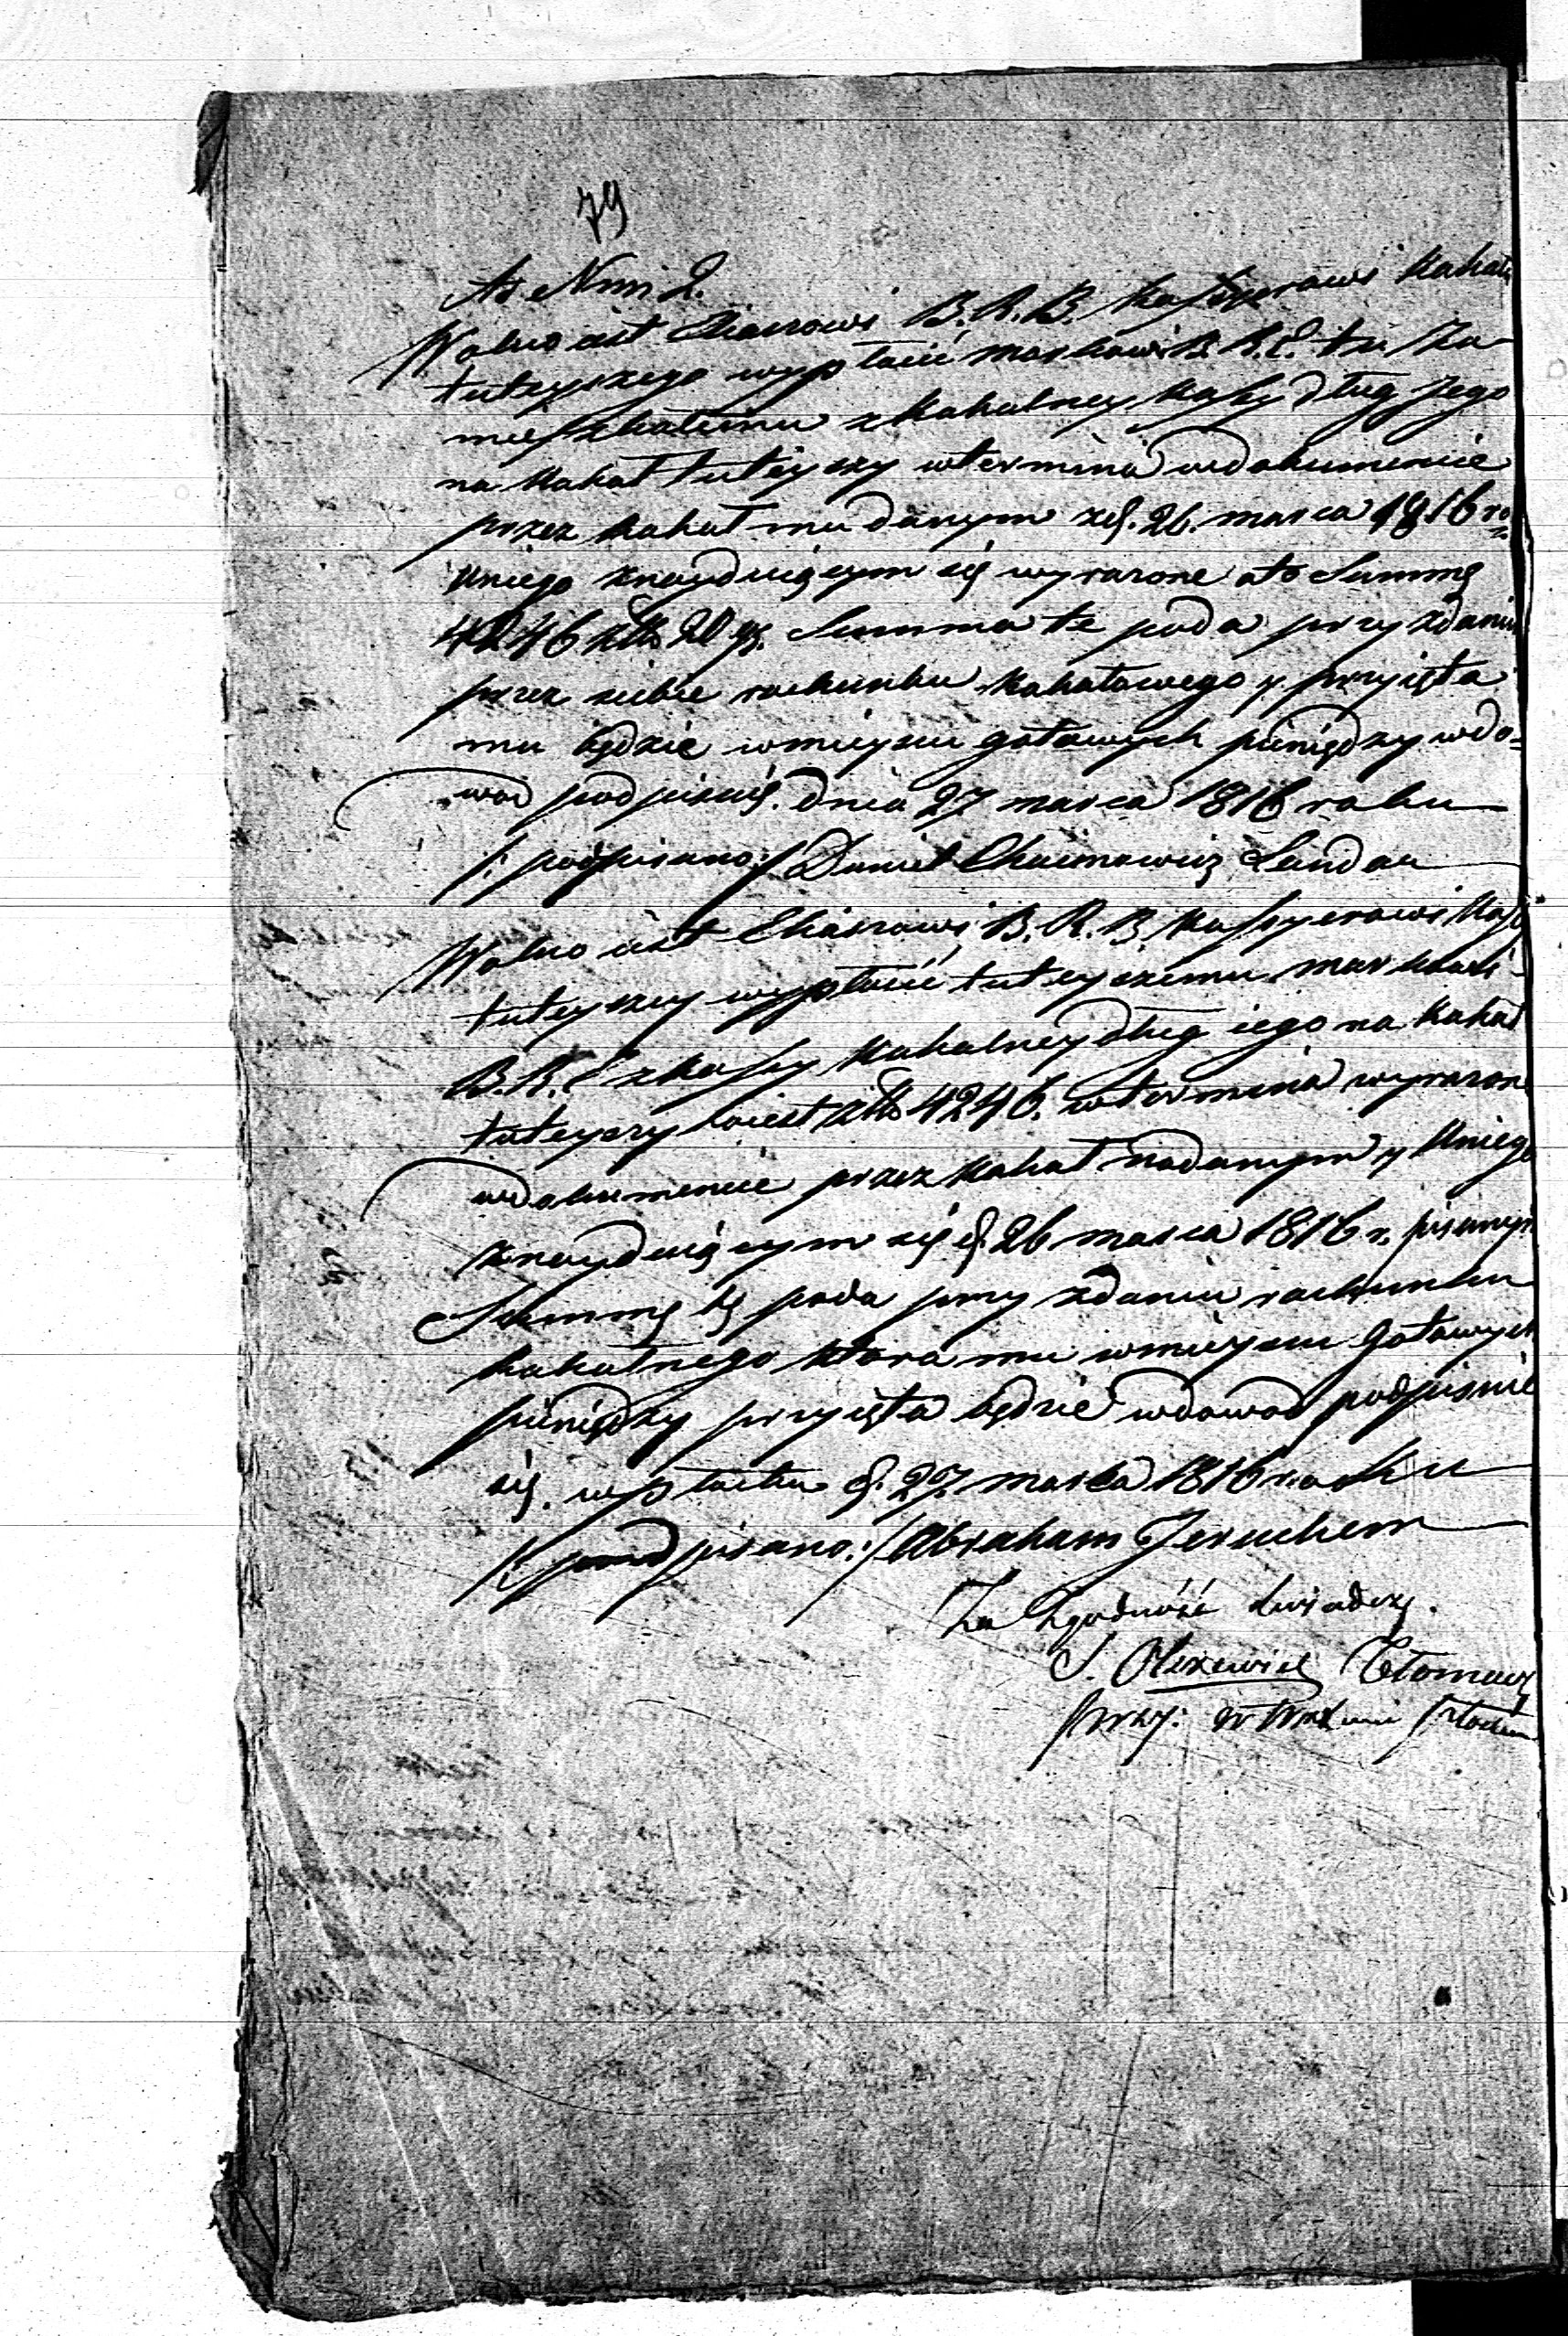 79
Ad Nrum 2.
Wolno iest Eliaszowi B. R. B. Kassyerowi Kahału
tuteyszego wypłacić Morkowi B. R. E. tu Za
mieszkałemu z Kahalney Kassy dług Jego
na Kahał tuteyszy w termina w dokumencie
przez Kahał mu danym z d. 26. marca 1816 ro
u niego znayduiącym się wyrażone a to Summę
4246 złł 20 gr. Summa te poda przy zdaniu
przez siebie rachunku Kahałowego y przyięta
mu będzie w mieyscu gotowych pieniędzy w do=
wod podpisuię. Dnia 27 marca 1816 roku
/: podpisano :/ Daniel Chaimowicz Landau
Wolno iest Eliaszowi B. R. B. Kassyerowi Kassy
tuteyszey wypłacić tuteyszemu Morkowi
B. R. E z Kassy Kahalney dług iego na Kahał
tuteyszy to iest złł 4246. w termina wyrażone
w dokumencie przez Kahał nadanym y u niego
znayduiącym się d 26 marca 1816 r. pisanym
Summę tę poda przy zdaniu rachunku
kahalnego która mu w mieyscu gotowych
pieniędzy przyięta będzie w dowod podpisuie
się. w Płocku d. 27. marca 1816 roku
/: podpisano :/ Abraham Jeruchem
Za Zgodność świadczę.
J. Olszewicz Tłomacz
przy: